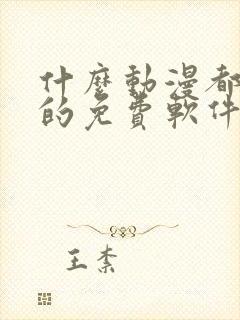 什麼動漫都
的免費軟件
王柰